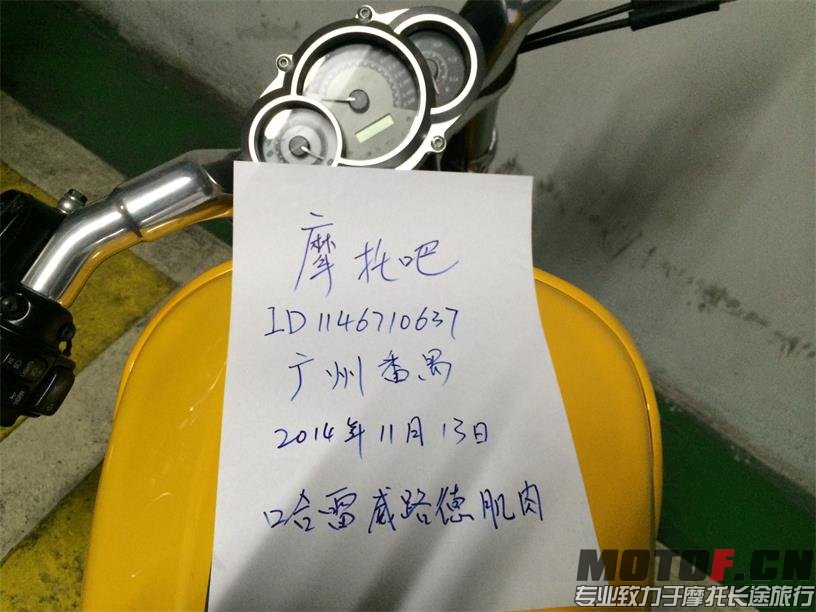 摩托吧
ID1146710637
广州番禺
2014年11月13日
哈雷威路德肌肉
MOTOF.CN
专业致力于摩托长途旅行